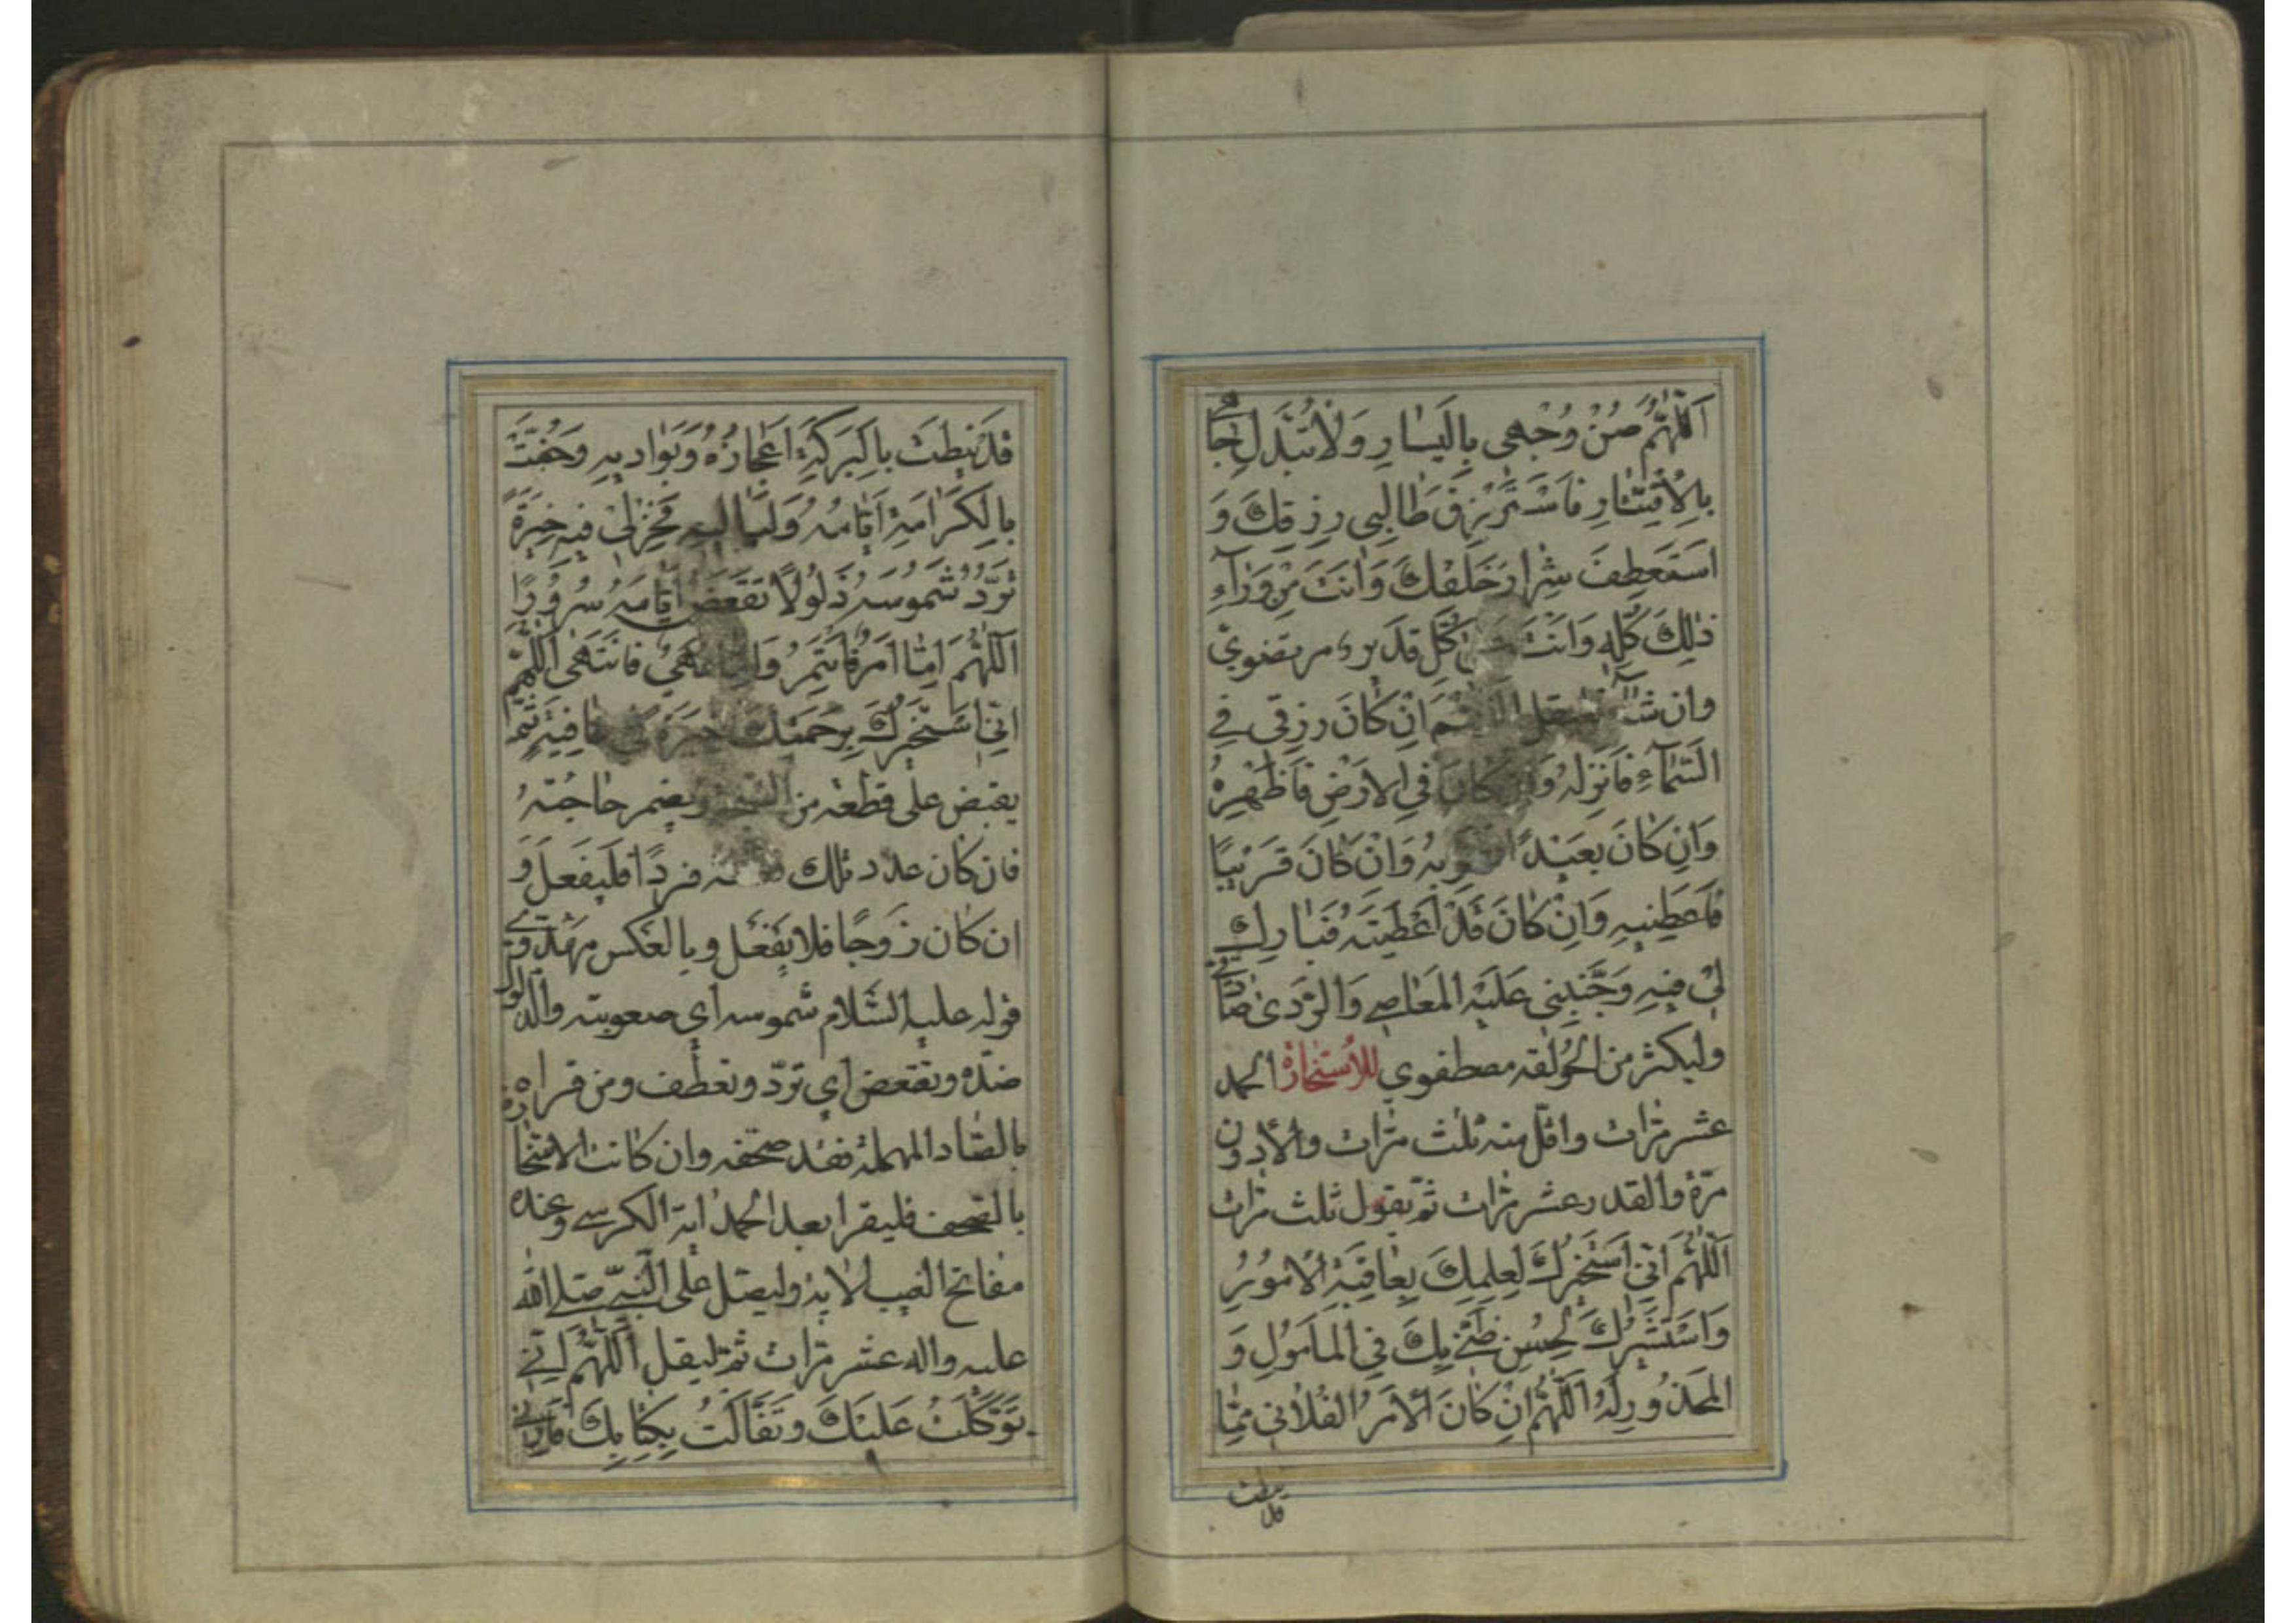 اَللّٰهُمَّ صُنْ وُجْهى بِالْيَسٰارِ وَلاٰ تُبَدِّلْ جاهى
بِالْاِقْتٰارِ فَاَسْتَرْزِقَ طٰالِبى رِزقِكَ وَ
اَسْتَعْطِفَ شِرٰارَ خَلْقِكَ وَاَنْتَ مِنْ وَرٰآءِ
ذٰلِكَ كُلِّهِ وَاَنْتَ كُلِّ قَدير مرتضوىّ
وان شآء فليقل اللّهم اِنْ كٰانَ رِزقى فِى
السَّمٰآءِ فَاَنْزِلْهُ وَاِنْ كٰانَ فِى الاَرْضِ فَاَظْهِرْهُ
وَاِنْ كٰانَ بَعيدًا فَقَرِّبْهُ وَاِنْ كٰانَ قَريبًا
فَاَعْطِنيهِ وَاِنْ كٰانَ قَدْ اَعْطَيْتَهُ فَبٰارِك
لى فيهِ وَجَنِّبْنى عَلَيْهِ المَعٰاصِى وَالرَّدىٰ صادقى
وليكثر من الحَوْلَقَه مصطفوى للاُستخارة الحمد
عشر مرّات واقلّ منه ثلث مرّات والأدون
مرّة والقدر عشر مرّات ثمّ يقول ثلث مرّات
اَللّٰهُمَّ اِنّى اَسْتَخيرُكَ لِعِلْمِكَ بِعٰاقِبَةِ الْاُمُورِ
وَاَسْتَشيرُكَ لِحُسْنِ ظَنّى بِكَ فِى المَاْمُولِ وَ
المَحْذُورِ اَللّٰهُمَّ اِنْ كٰانَ الاَمْرُ الفُلاٰنى مِمّٰا
قد
قَدْ نيطَتْ بِالْبَرَكَةِ اَعْجازُهُ وَبَواديهِ وَحُفَّتْ
بِالْكَرٰامَةِ اَيّٰامُهُ وَلَيٰاليهِ فَخِرْلى فيهِ خِيَرَةً
تَرُدُّ شَمُوسَهُ ذَلُولًا تَقْعَضُ اَيّٰامَهُ سُرُورًا
اَللّٰهُمَّ اِمّٰا اَمْرٌ فَاَئْتَمِرُ وَاِمّٰا نَهْىٌ فَاَنْتَهى اَللّهُمَّ
اِنّى اَسْتَخيرُكَ بِرَحْمَتِكَ خِيَرَةً فى عٰافِيَةٍ ثمّ
يقبض على قطعة من السبحة ويضمر حاجته
فان كان عدد تلك القطعة فردًا فليفعل و
ان كان زوجًا فلا يفعل وبالعكس مهدوىّ
قوله عليه السّلام شموسه اى صعوبته والذلول
ضدّه وتقعض اى تردّ وتعطف ومن قراه
بالصّاد المهملة فقد صحّفه وان كانت الاستخارة
بالمصحف فليقرا بعد الحمد اية الكرسى وعنده
مفاتح الغيب الاية وليصلّ على النّبىّ صلى الله
عليه واله عشر مرّات ثمّ ليقل اَللّٰهُمَّ اِنّى
تَوَكَّلْتُ عَلَيْكَ وتَفَأَّلْتُ بِكِتٰابِكَ فَاَرِنى